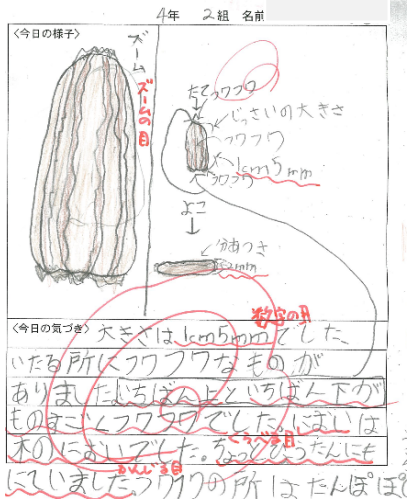 4年 2組 名前
〈今日の様子〉
ズーム
ズームの目
たて フワフワ
じっさいの大きさ
フワフワ
1cm5mm
フワフワ
よこ
あつさ
2mm
数字の目
〈今日の気づき〉 大きさは1cm5mmでした。
いたる所にフワフワなものが
ありました。いちばん上といちばん下が
ものすごくフワフワでした。においは
くらべる目
木のにおいでした。ちょっとひょうたんにも
かんじる目
にていました。フワフワの所はたんぽぽ